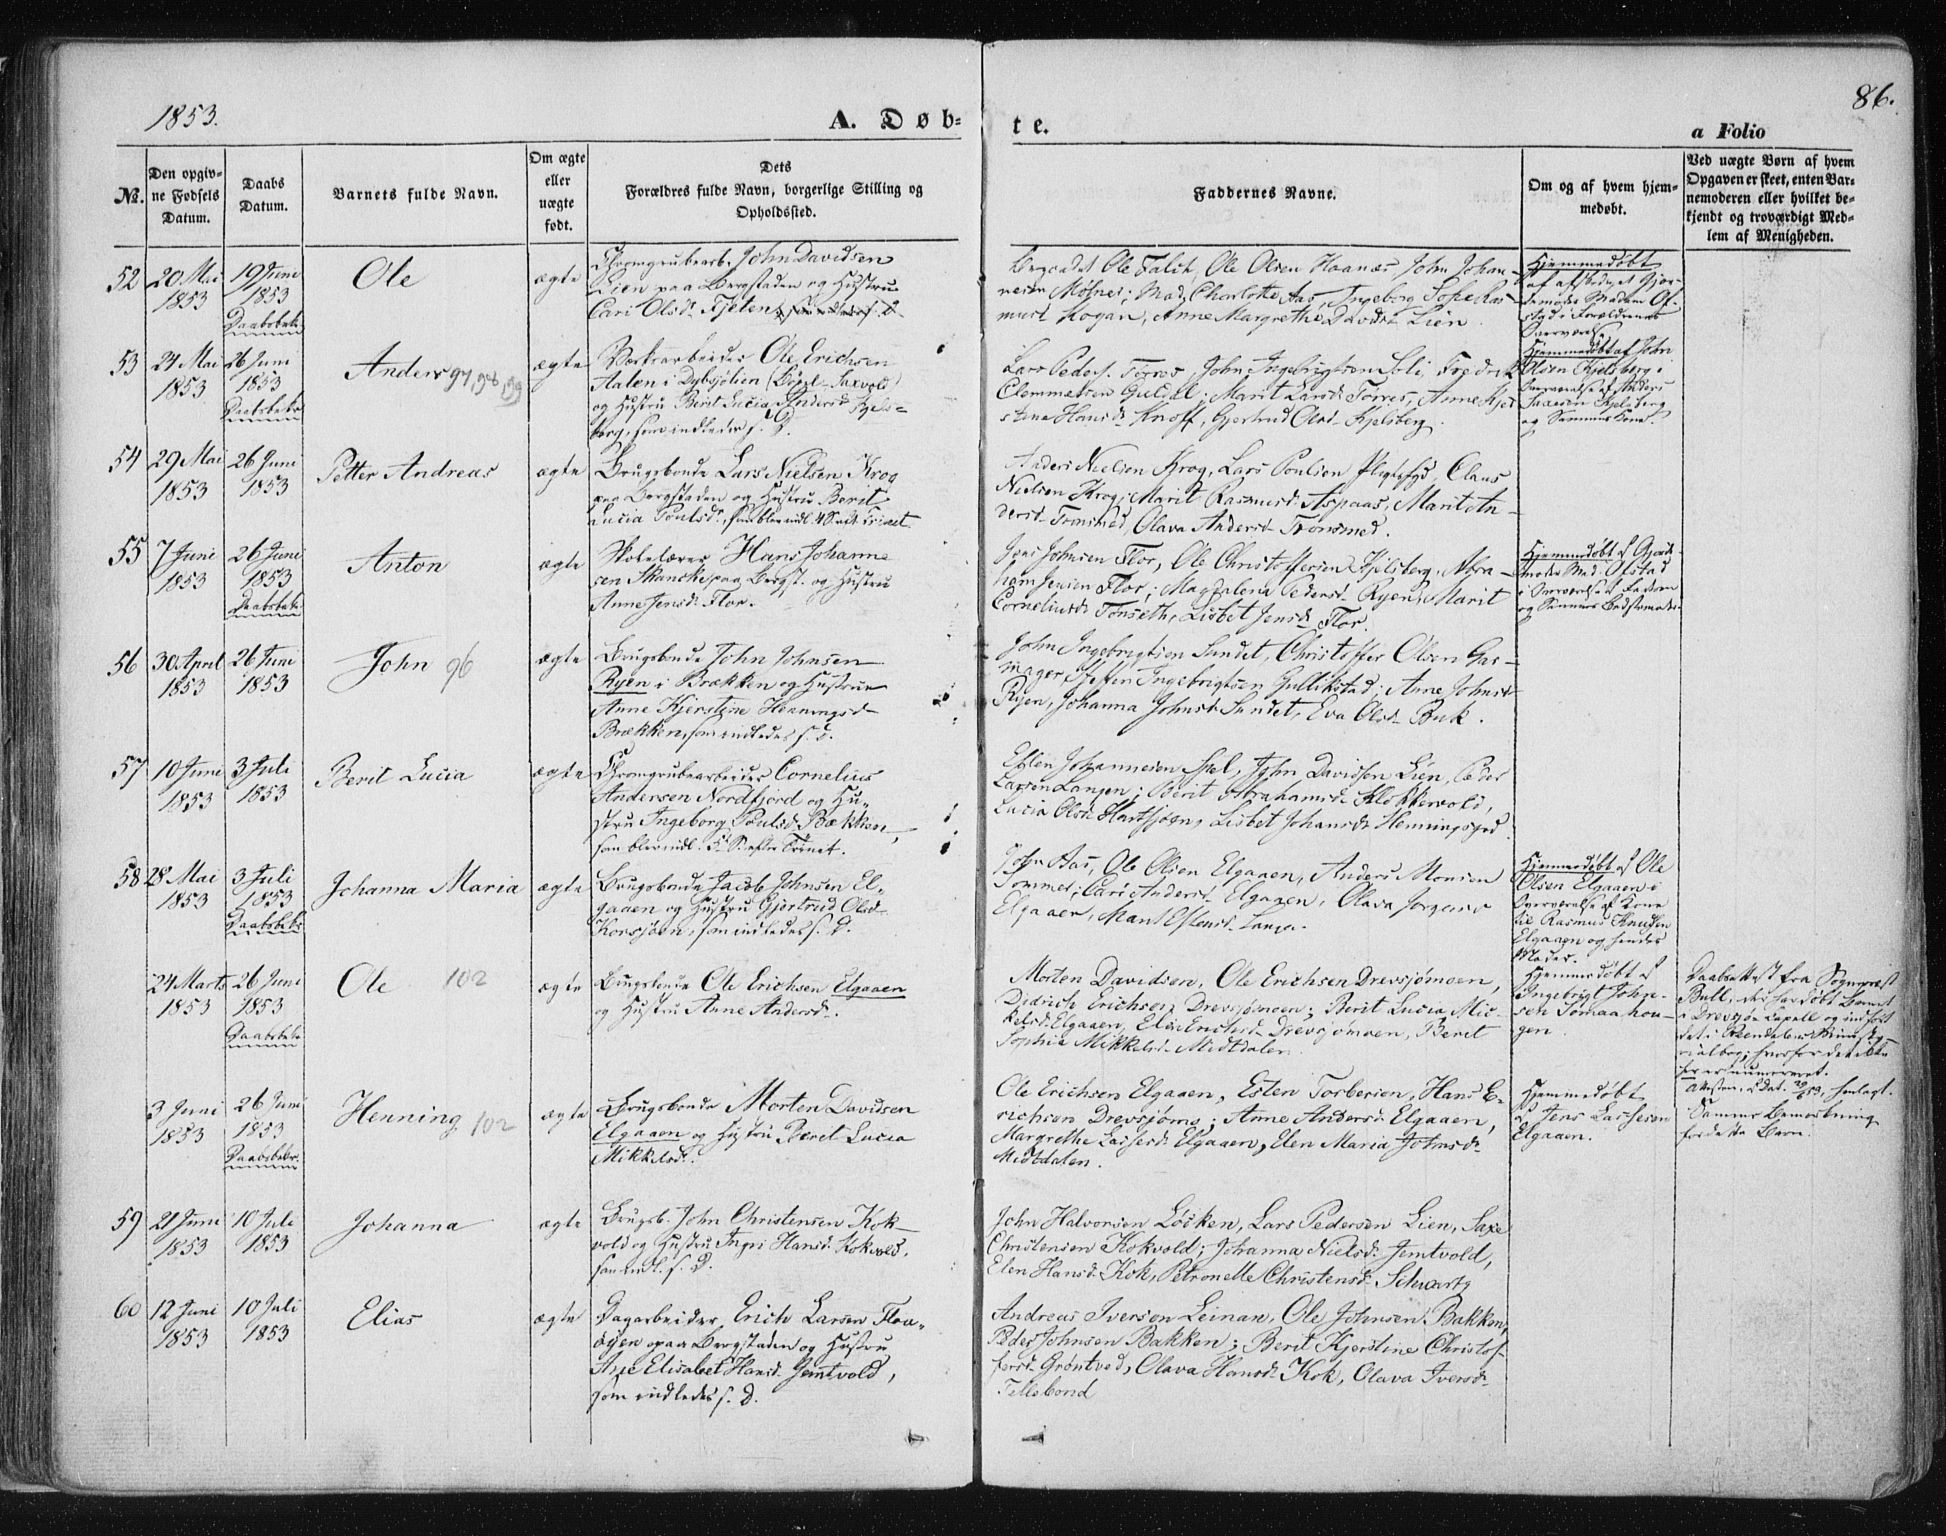 1853.
A. Døb-
te.
86.
a Folio
No.
Den opgiv-
ne Fødsels
Datum.
Daabs
Datum.
Barnets fulde Navn.
Om ægte
eller
uægte
født.
Dets
Forældres fulde Navn, borgerlige Stilling og
Opholdssted.
Faddernes Navne.
Om og af hvem hjem-
medøbt.
Ved uægte Børn af hvem
Opgaven er skeet, enten Bar-
nemoderen eller hvilket be-
kjendt og troværdigt Med-
lem af Menigheden.
52
20 Mai
1853
19 Juni
1853
Daabsbekr.
Ole
ægte
Chromgrubearb. John Davidsen
Lien paa Bergstaden og Hustru
Cari Olsd. Fjeten
Ole Falch, Ole Olsen Haanæs, John Johan-
nesen Møsnes; Mad. Charlotte Aas, Ingeborg Sofie Ras-
musd. Kogan, Anne Margrethe Davidsd. Lien
Hjemmedøbt
af
Overværelse
53
24 Mai
1853
26 Juni
1853
Daabsbekr.
Anders 97, 98, 99
ægte
Værksarbeider Ole Erichsen
Aalen i Dybsjølien
og Hustru Berit Lucia Andersd. Kjels-
berg, som indledes s. D.
Lars Peders. Torres, John Ingebrigtsen Soli, Fredrik
Clemmetsen Guldal; Marit Larsd. Torres, Anne Kjer-
stine Hansd. Knoff, Gjertrud Olsd. Kjelsberg.
Hjemmedøbt af John
Olsen Kjelsberg i
Overværelse af Anders
Kjelsberg
og Sammes Kone.
54
29 Mai
1853
26 Juni
1853
Petter Andreas
ægte
Brugsbonde Lars Nielsen Krog
paa Bergstaden og Hustru Berit
Lucia Poulsd., som blev indl. 4 S. eft. Trinet.
Anders Nielsen Krog, Lars Poulsen, Claus
Nielsen Krog; Marit Rasmusd. Aspaas, Marit An-
dersd. Tronsmed, Olava Andersd. Tronsmed.
55
7 Juni
1853
26 Juni
1853
Daabsbekr.
Anton
ægte
Skolelærer Hans Johanne-
sen Skancke paa Bergst. og Hustru
Anne Jensd. Flor.
Jens Johnsen Flor, Ole Christoffersen Kjelsberg, Abra-
ham Jensen Flor; Magdalena Pedersd. Ryen, Marit
Corneliusd. Tønseth, Lisbet Jensd. Flor.
Hjemmedøbt af Gjorde-
moder Mad. Olstad
i Overværelse af Faderen
og Sammes Bedstemoder.
56
30 April
1853
26 Juni
1853
John 96
ægte
Brugsbonde John Johnsen
Ryen i Brækken og Hustru
Anne Kjerstine Henningsd.
Brækken, som indledes s. D.
John Ingebrigtsen Sundet, Christoffer Olsen Gar-
mager, Steffen Ingebrigtsen Gullikstad; Anne Johnsd.
Ryen, Johanna Johnsd. Sundet, Eva Olsd. Buk.
57
10 Juni
1853
3 Juli
1853
Berit Lucia
ægte
Chromgrubearbeider Cornelius
Andersen Nordfjord og Hu-
stru Ingeborg Poulsd. Bækken,
som blev indl. 5 S. efter Trinet.
Esten Johannesen Spel, John Davidsen Lien, Peder
Larsen Langen; Berit Abrahamsd. Klokkervold,
Lucia Olsd. Hartsjøen, Lisbet Johansd. Henningsgrd.
58
28 Mai
1853
3 Juli
1853
Daabsbekr.
Johanna Maria
ægte
Brugsbonde Jacob Johnsen El-
gaaen og Hustru Gjertrud Olsd.
Korssjøen, som indledes s. D.
John Aas, Ole Olsen Elgaaen, Anders Monsen
Tommes; Cari Andersd. Elgaaen, Olava Jørgensd.
Elgaaen, Mari Estensd. Langen.
Hjemmedøbt af Ole
Olsen Elgaaen i
Overværelse af Kone
til Rasmus Knudsen
Elgaaen og hendes
Moder.
24 Marts
1853
26 Juni
1853
Daabsbekr.
Ole 102
ægte
Brugsbonde Ole Erichsen Elgaaen
og Hustru Anne Andersd.
Morten Davidsen, Ole Erichsen Drevsjømoen,
Didrich Erichsen Drevsjømoen; Berit Lucia Mic-
kelsd. Elgaaen, Eli Erichsd. Drevsjømoen, Berit
Sophia Mikkelsd. Midtdalen.
Hjemmedøbt af
Ingebrigt John-
sen Sømaahou-
gen.
Daabsattest fra Sognepræst
Bull, der har døbt Barnet
i Drevsjø Capell og indført
det i Rendalens Ministe-
rialbog; hvorfor det ikke
her er nummereret.
3 Juni
1853
26 Juni
1853
Daabsbekr.
Henning 102
ægte
Brugsbonde Morten Davidsen
Elgaaen og Hustru Beret Lucia
Mikkelsd.
Ole Erichsen Elgaaen, Esten Torbersen, Hans E-
richsen Drevsjømo; Anne Andersd. Elgaaen,
Margrethe Lassesd. Elgaaen, Elen Maria Johnsd.
Midtdalen.
Hjemmedøbt
af Jens Lassesen
Elgaaen.
Samme Bemærkning
for dette Barn.
59
21 Juni
1853
10 Juli
1853
Johanna
ægte
Brugsb. John Christensen Kok-
vold og Hustru Ingri Hansd. Kokvold,
som indl. s. D.
John Halvorsen Løsken, Lars Pedersen Lien, Saxe
Christensen Kokvold; Johanna Nielsd. Jemtvold,
Elen Hansd. Kok, Petronelle Christensd. Schwartz
60
12 Juni
1853
10 Juli
1853
Elias
ægte
Dagarbeider Erich Larsen Floa-
øien paa Bergstaden og Hustru
Ane Elisabet Hansd. Jemtvold,
som indledes s. D.
Andreas Iversen Leinan, Ole Johnsen Bakken,
Peder Johnsen Bakken; Berit Kjerstine Christof-
fersd. Grøntved, Olava Hansd. Kok, Olava Iversd.
Tellebond